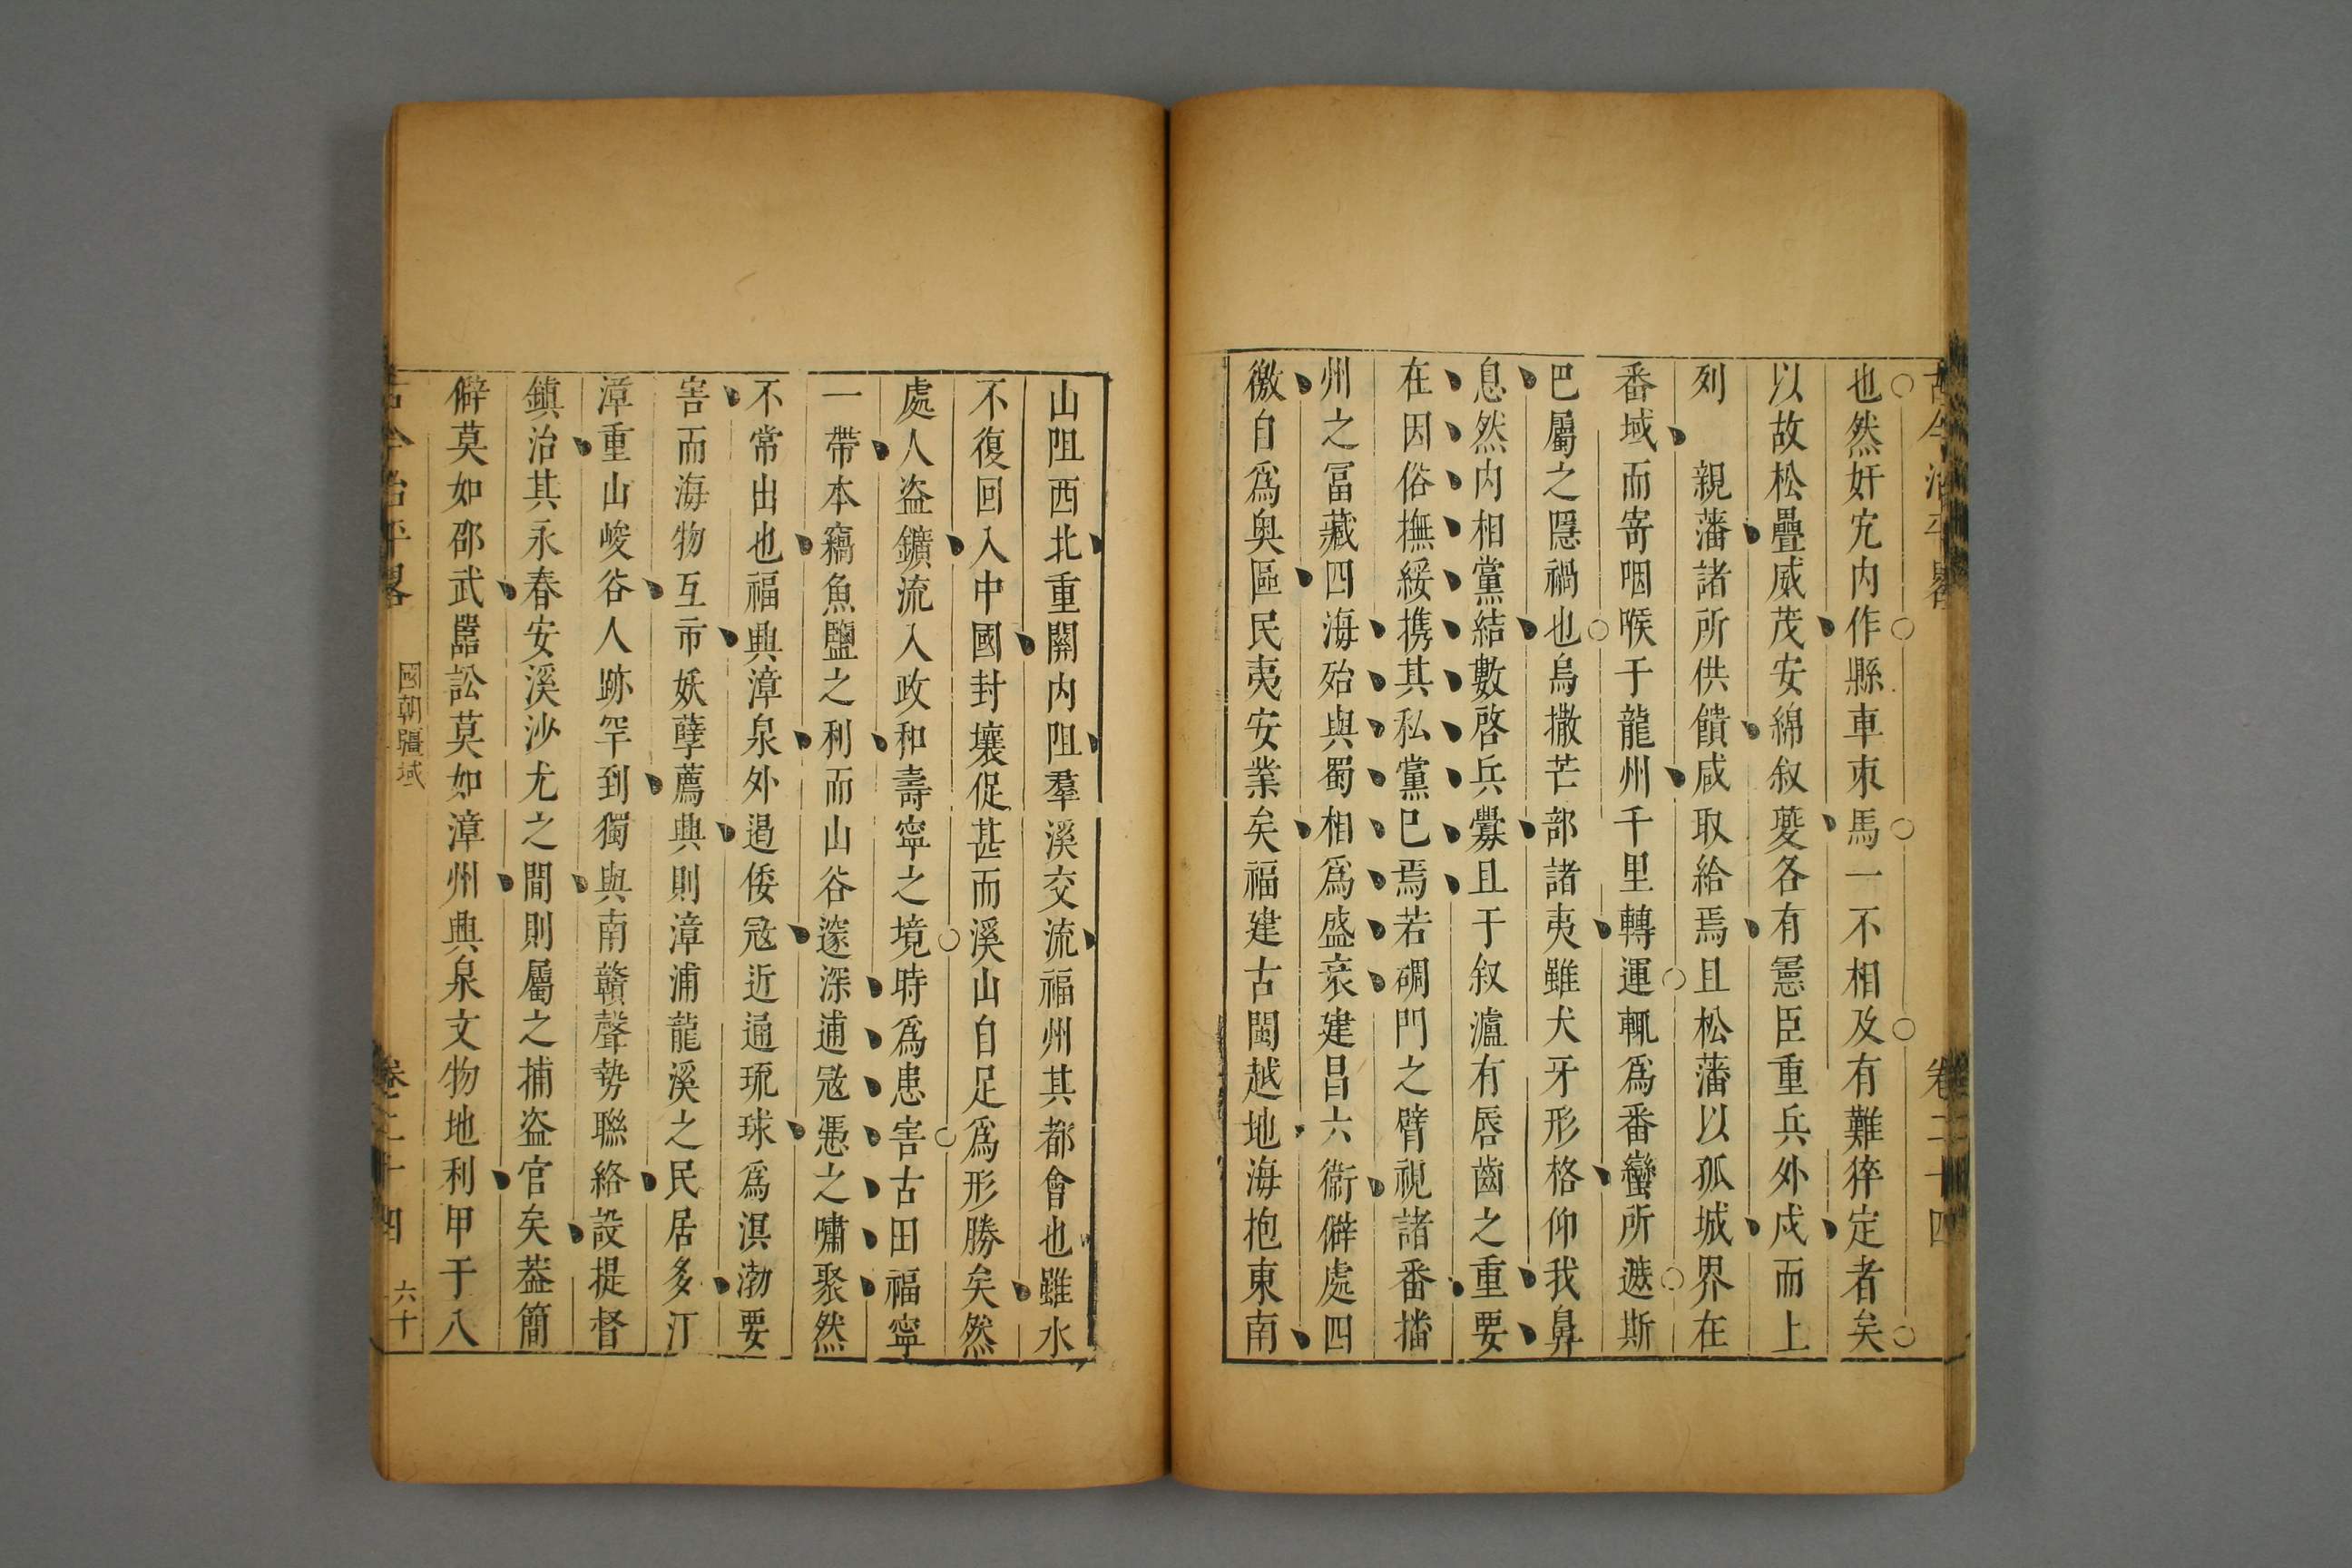 古今治平畧 卷二十四
也然奸宄内作縣車束馬一不相及有難猝定者矣
以故松疊威茂安綿叙夔各有憲臣重兵外戍而上
列 親藩諸所供饋咸取給焉且松藩以孤城界在
番域而寄咽喉于龍州千里轉運輒爲番蠻所遮斯
巴屬之隱禍也烏撒芒部諸夷雖犬牙形格仰我鼻
息然内相黨結數啓兵釁且于叙瀘有唇齒之重要
在因俗撫綏携其私黨巳焉若碉門之臂視諸番播
州之冨藏四海殆與蜀相爲盛衰建昌六衞僻處四
徼自爲奥區民夷安業矣福建古閩越地海抱東南
山阻西北重關内阻羣溪交流福州其都會也雖水
不復回入中國封壤促甚而溪山自足爲形勝矣然
處人盗鑛流入政和壽寧之境時爲患害古田福寧
一帶本竊魚鹽之利而山谷邃深逋冦憑之嘯聚然
不常出也福興漳泉外遏倭冦近通琉球爲溟渤要
害而海物互市妖孽薦興則漳浦龍溪之民居多汀
漳重山峻谷人跡罕到獨與南贛聲勢聯絡設提督
鎮治其永春安溪沙尤之間則屬之捕盗官矣葢簡
僻莫如邵武嚚訟莫如漳州興泉文物地利甲于八
古今治平畧 國朝疆域 卷二十四 六十